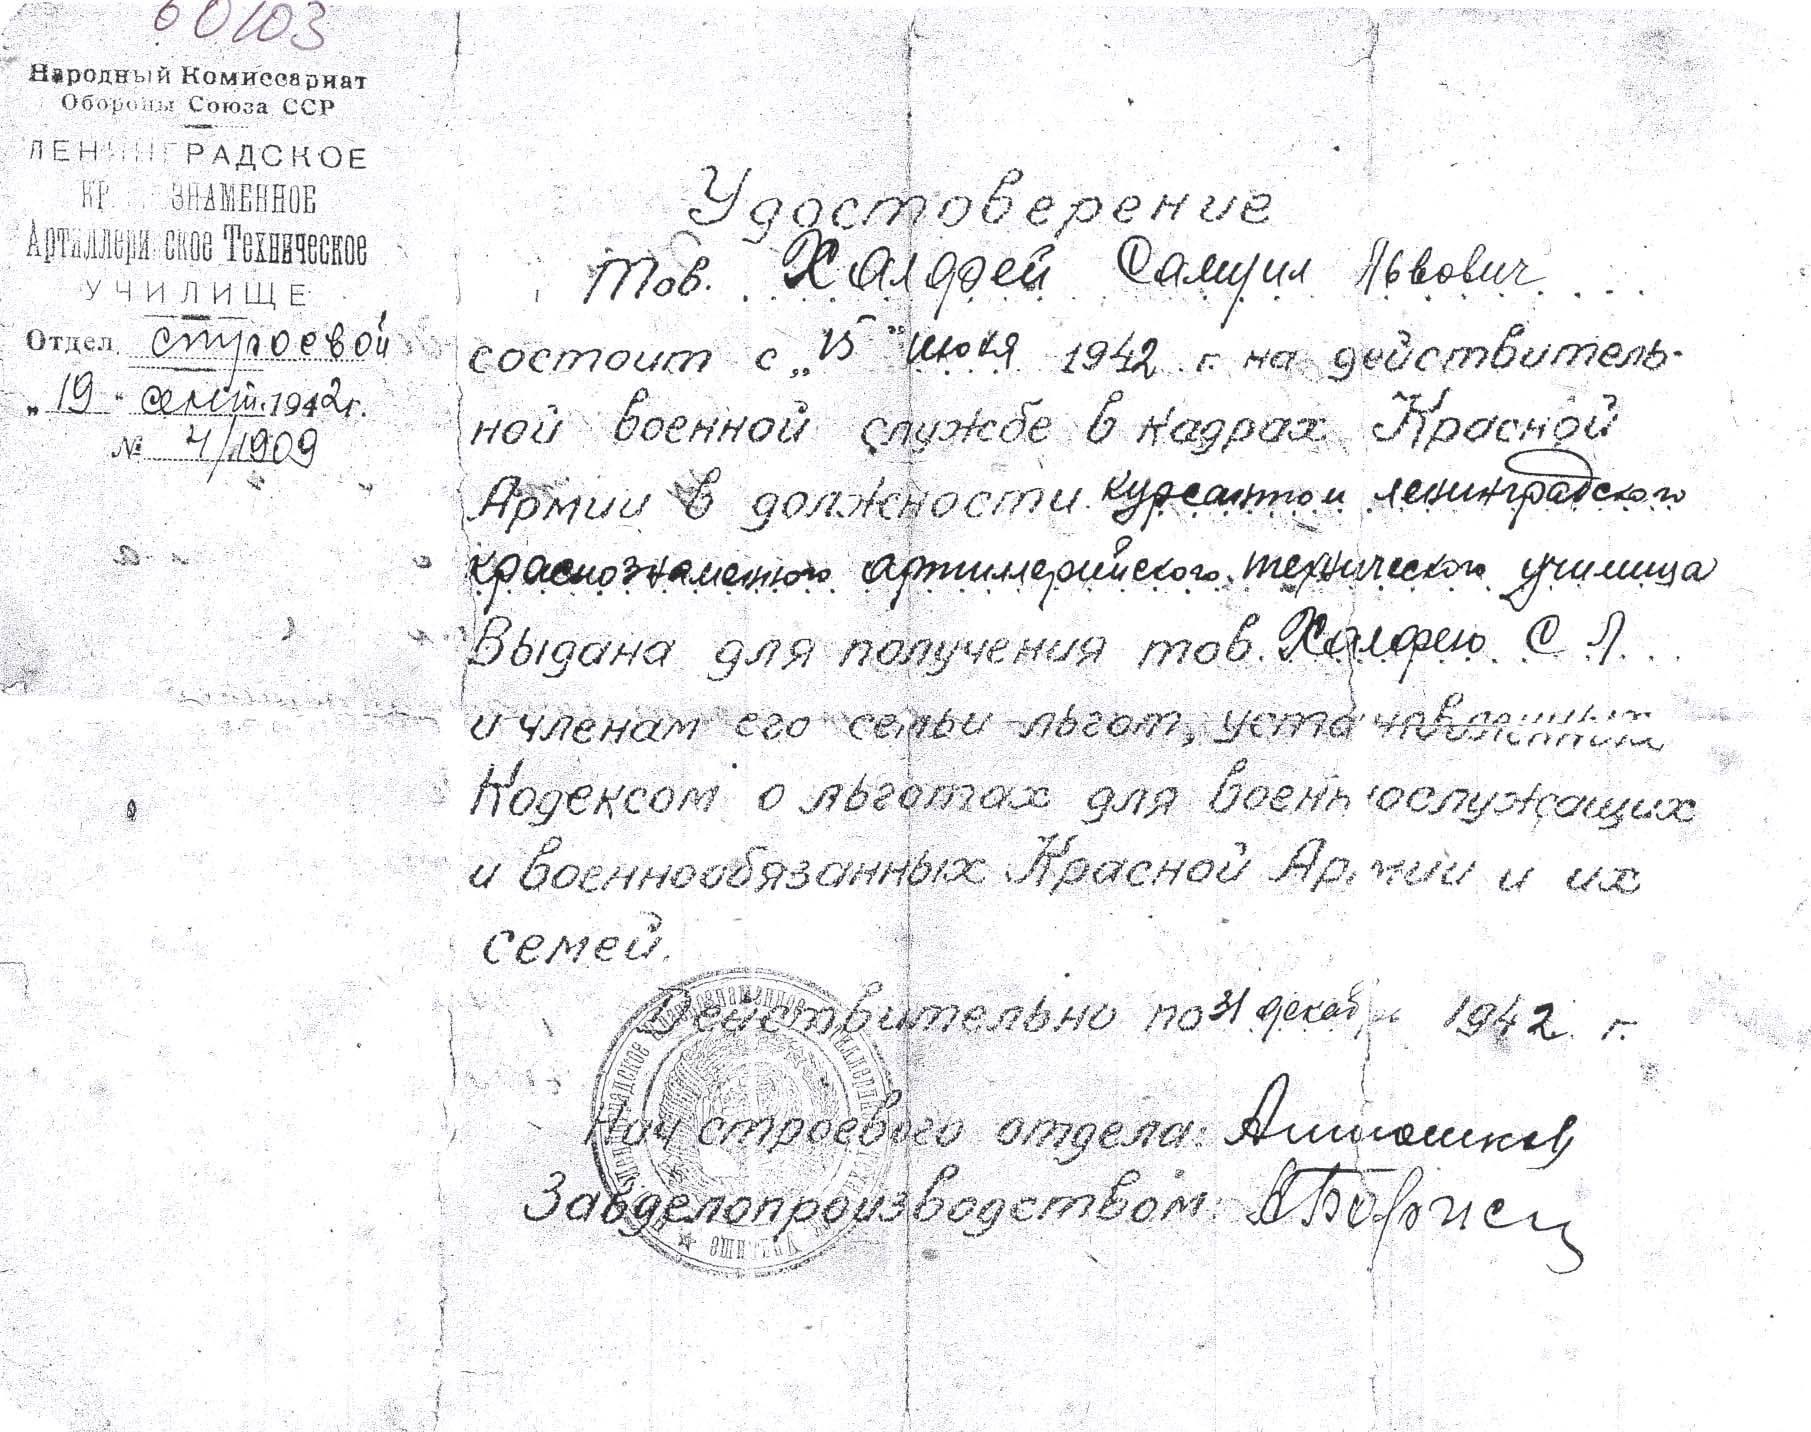 60103
Народный Комиссариат
Обороны Союза ССР
ЛЕНИНГРАДСКОЕ
КР ЗНАМЕННОЕ
Артиллери ское Техническое
УЧИЛИЩЕ
Отдел строевой
„19" сент. 1942 г.
№ 4/1909
Удостоверение
Тов. Халфей Самуил Львович
состоит с „15" июля 1942 г. на действитель-
ной военной службе в кадрах Красной
Армии в должности курсантом ленинградского
краснознаменного артиллерийского технического училища
Выдана для получения тов. Халфею С Л
и членам его семьи льгот, установленных
Кодексом о льготах для военнослужащих
и военнообязанных Красной Армии и их
семей.
Действительно по 31 декаб 1942 г.
Нач строевого отдела:
Завделопроизводством:
УЧИЛИЩЕ